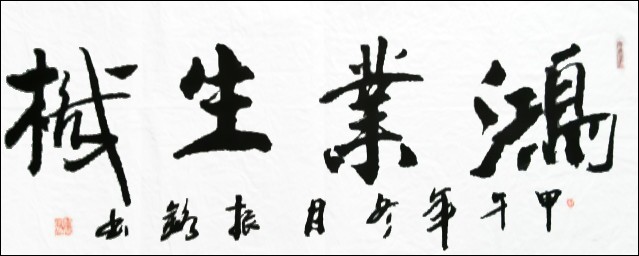 鴻業生機
甲午年冬月振銘书